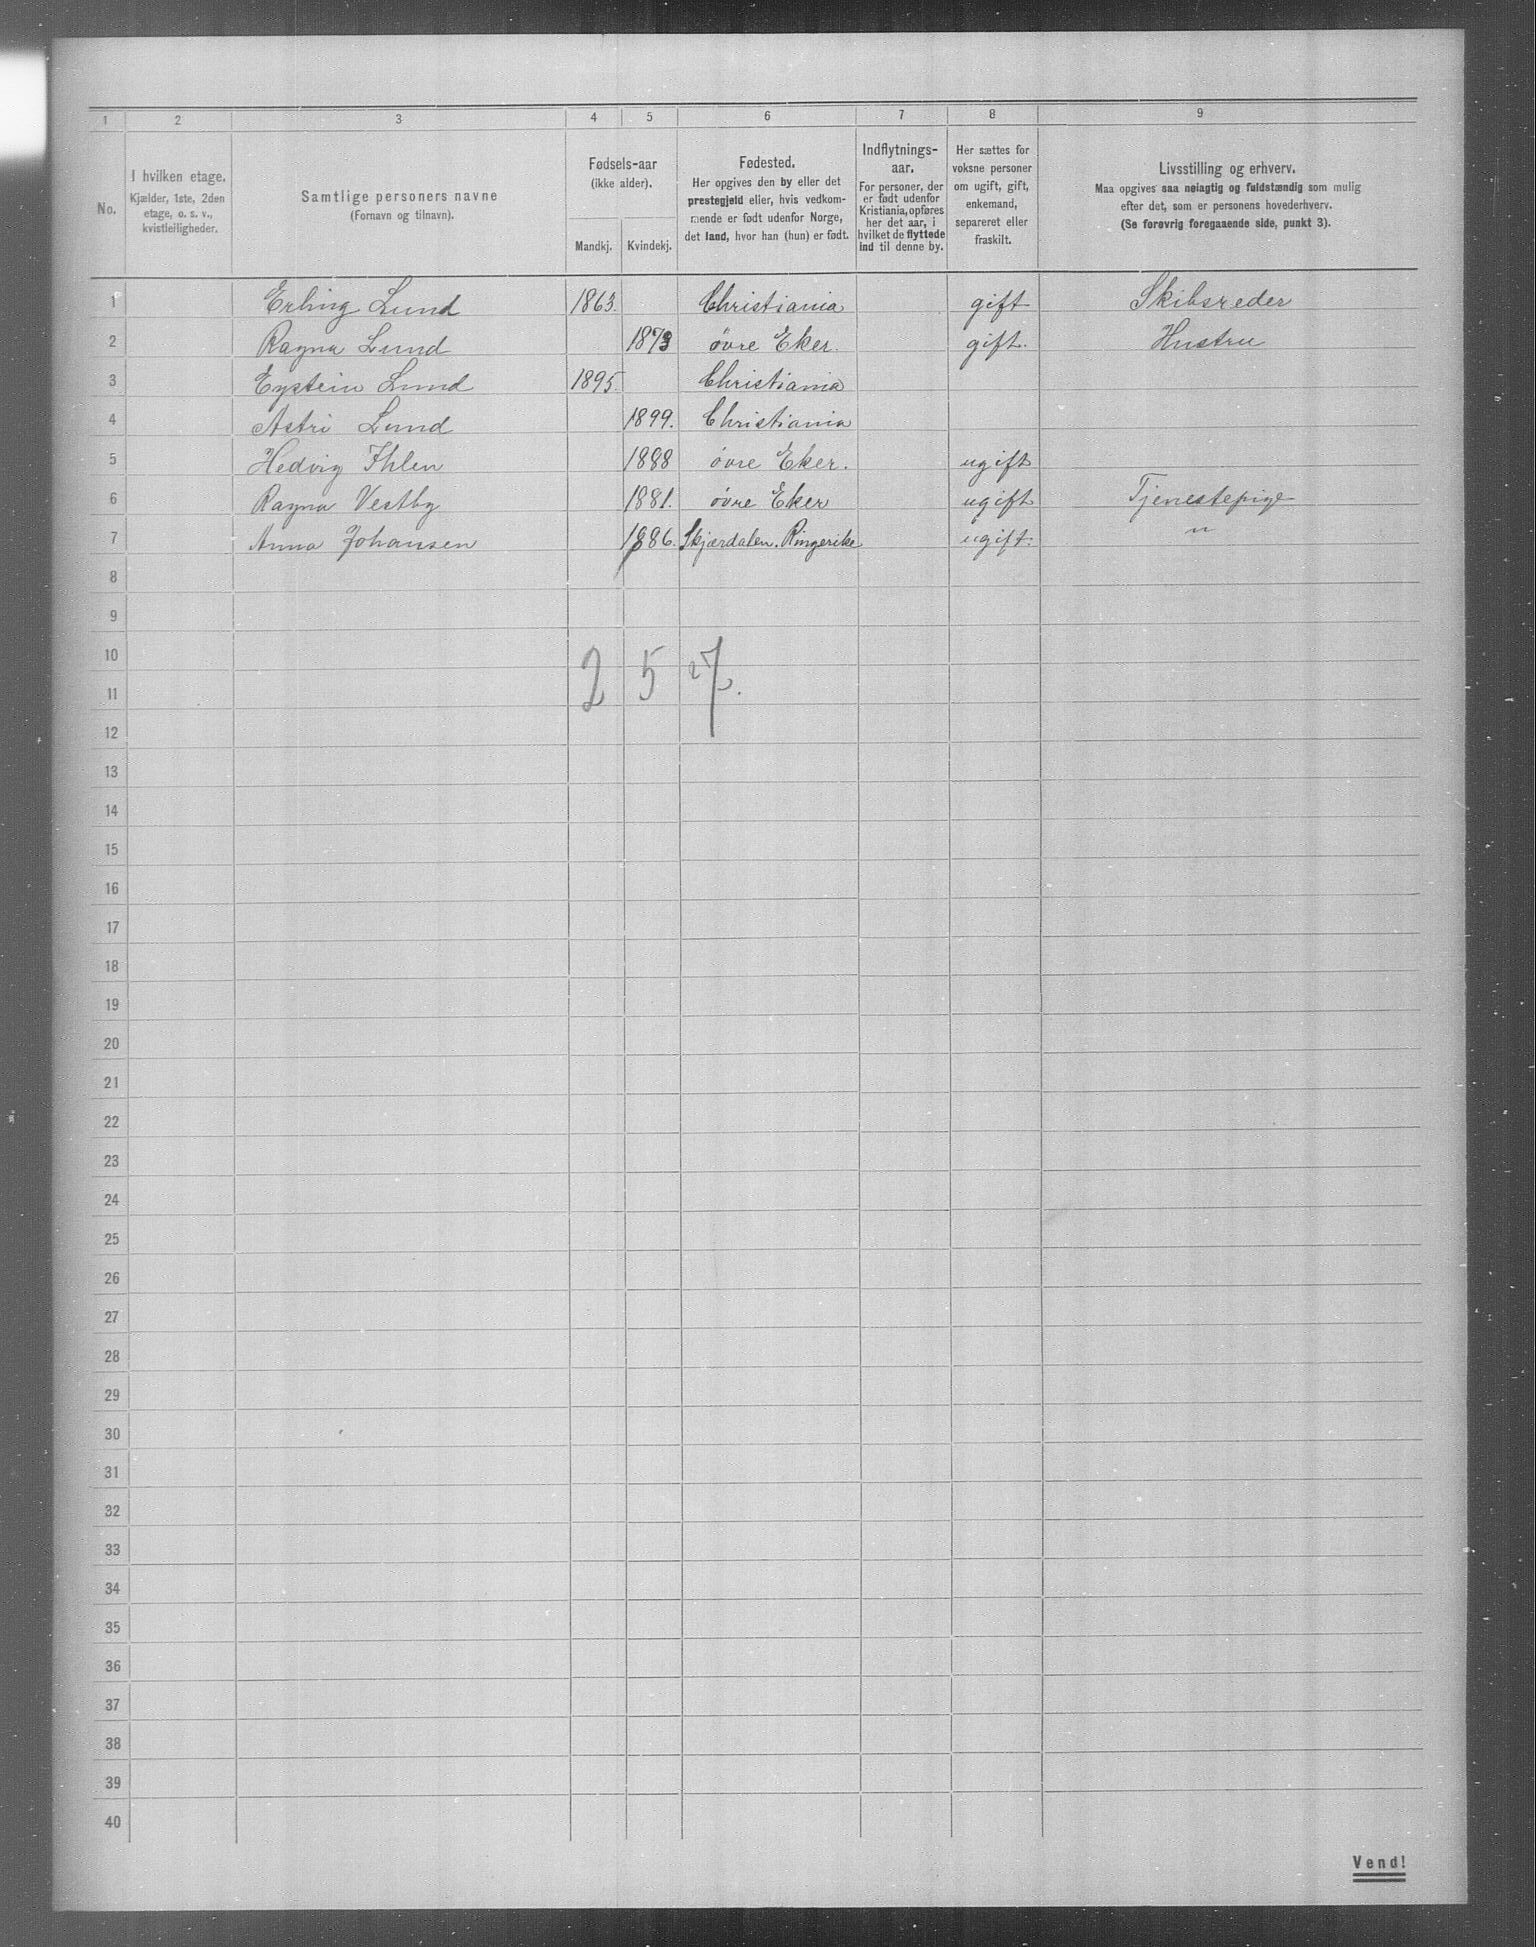 1 2 3 4 5 6 7 8 9
No.
I hvilken etage.
Kjælder, 1ste, 2den
etage, o. s. v.,
kvistleiligheder.
Samtlige personers navne
(Fornavn og tilnavn).
Fødsels-aar
(ikke alder).
Mandkj. Kvindekj.
Fødested.
Her opgives den by eller det
prestegjeld eller, hvis vedkom-
mende er født udenfor Norge,
det land, hvor han (hun) er født.
Indflytnings-
aar.
For personer, der
er født udenfor
Kristiania, opføres
her det aar, i
hvilket de flyttede
ind til denne by.
Her sættes for
voksne personer
om ugift, gift,
enkemand,
separeret eller
fraskilt.
Livsstilling og erhverv.
Maa opgives saa nøiagtig og fuldstændig som mulig
efter det, som er personens hovederhverv.
(Se forøvrig foregaaende side, punkt 3).
1 Erling Lund 1863. Christiania gift Skibsreder
2 Ragna Lund 1873 øvre Eker. gift. Hustru
3 Eystein Lund 1895. Christiania
4 Astri Lund 1899. Christiania
5 Hedvig Ihlen 1888 øvre Eker. ugift
6 Ragna Vestby 1881. øvre Eker ugift Tjenestepige
7 Anna Johansen 1886. Skjærdalen. Ringerike ugift. "
8
9
10
2 5 7.
11
12
13
14
15
16
17
18
19
20
21
22
23
24
25
26
27
28
29
30
31
32
33
34
35
36
37
38
39
40
Vend!